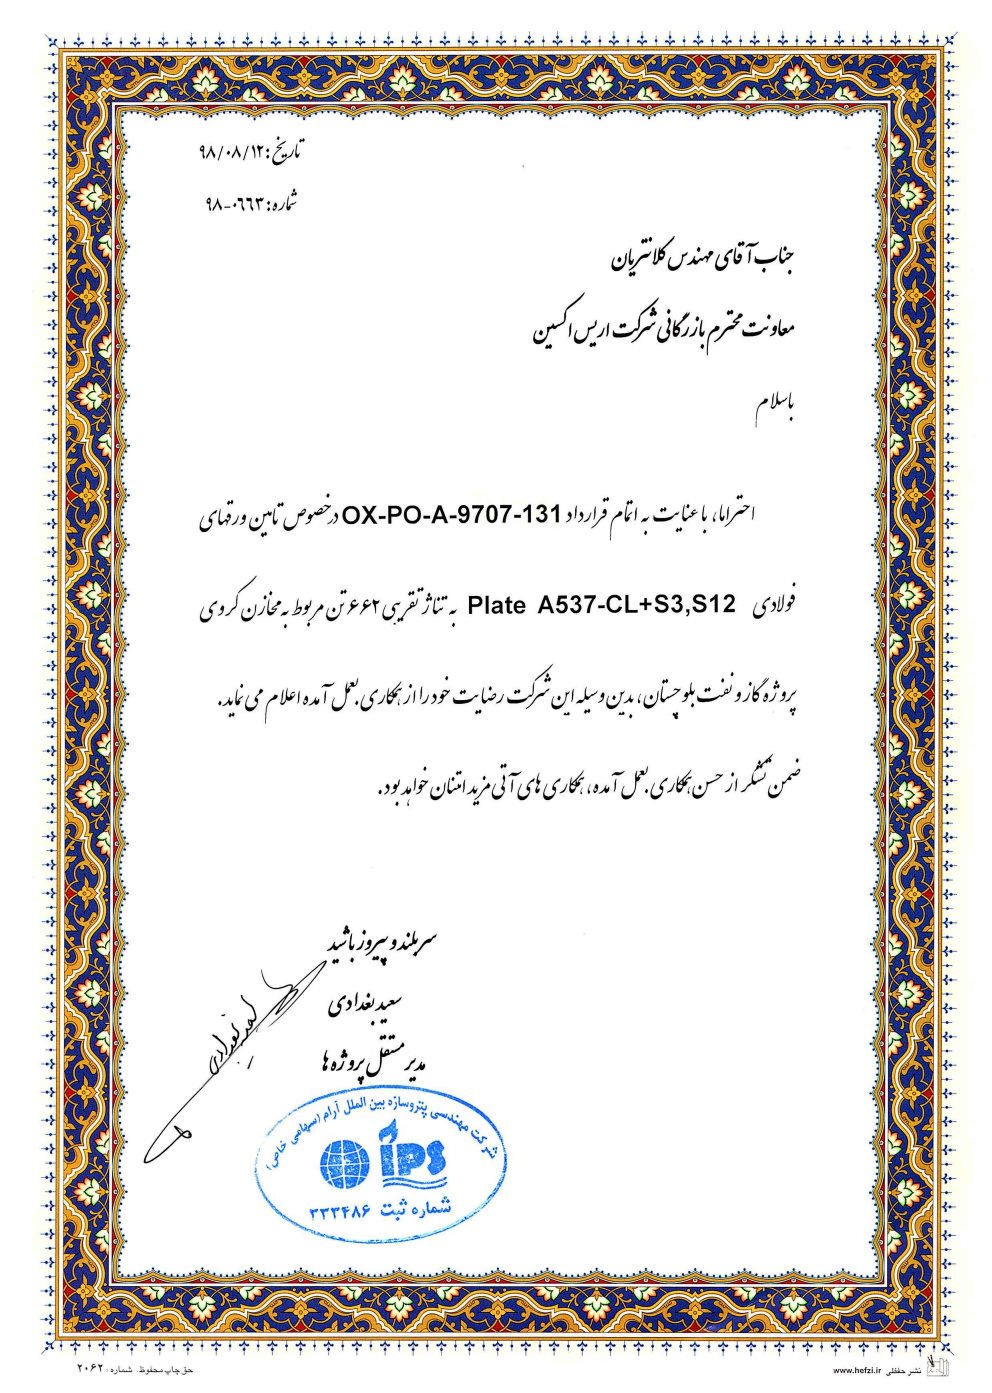 تاریخ: ۹۸/۰۸/۱۲
شماره: ۹۸-۰۶۶۳
جناب آقای مهندس کلانتریان
معاونت محترم بازرگانی شرکت اریس اکسین
باسلام
احتراما، با عنایت به اتمام قرارداد OX-PO-A-9707-131 درخصوص تامین ورقهای
فولادی Plate A537-CL+S3,S12 به تناژ تقریبی ۶۶۲ تن مربوط به مخازن کروی
پروژه گاز و نفت بلوچستان، بدین وسیله این شرکت رضایت خود را از همکاری بعمل آمده اعلام می نماید.
ضمن تشکر از حسن همکاری بعمل آمده، همکاری های آتی مزید امتنان خواهد بود.
سربلند و پیروز باشید
سعید بغدادی
مدیر مستقل پروژه ها
شرکت مهندسی پتروسازه بین الملل آرام (سهامی خاص)
iPS
شماره ثبت ۳۳۳۴۸۶
حق چاپ محفوظ. شماره: ۲۰۶۲
نشر حفظی www.hefzi.ir